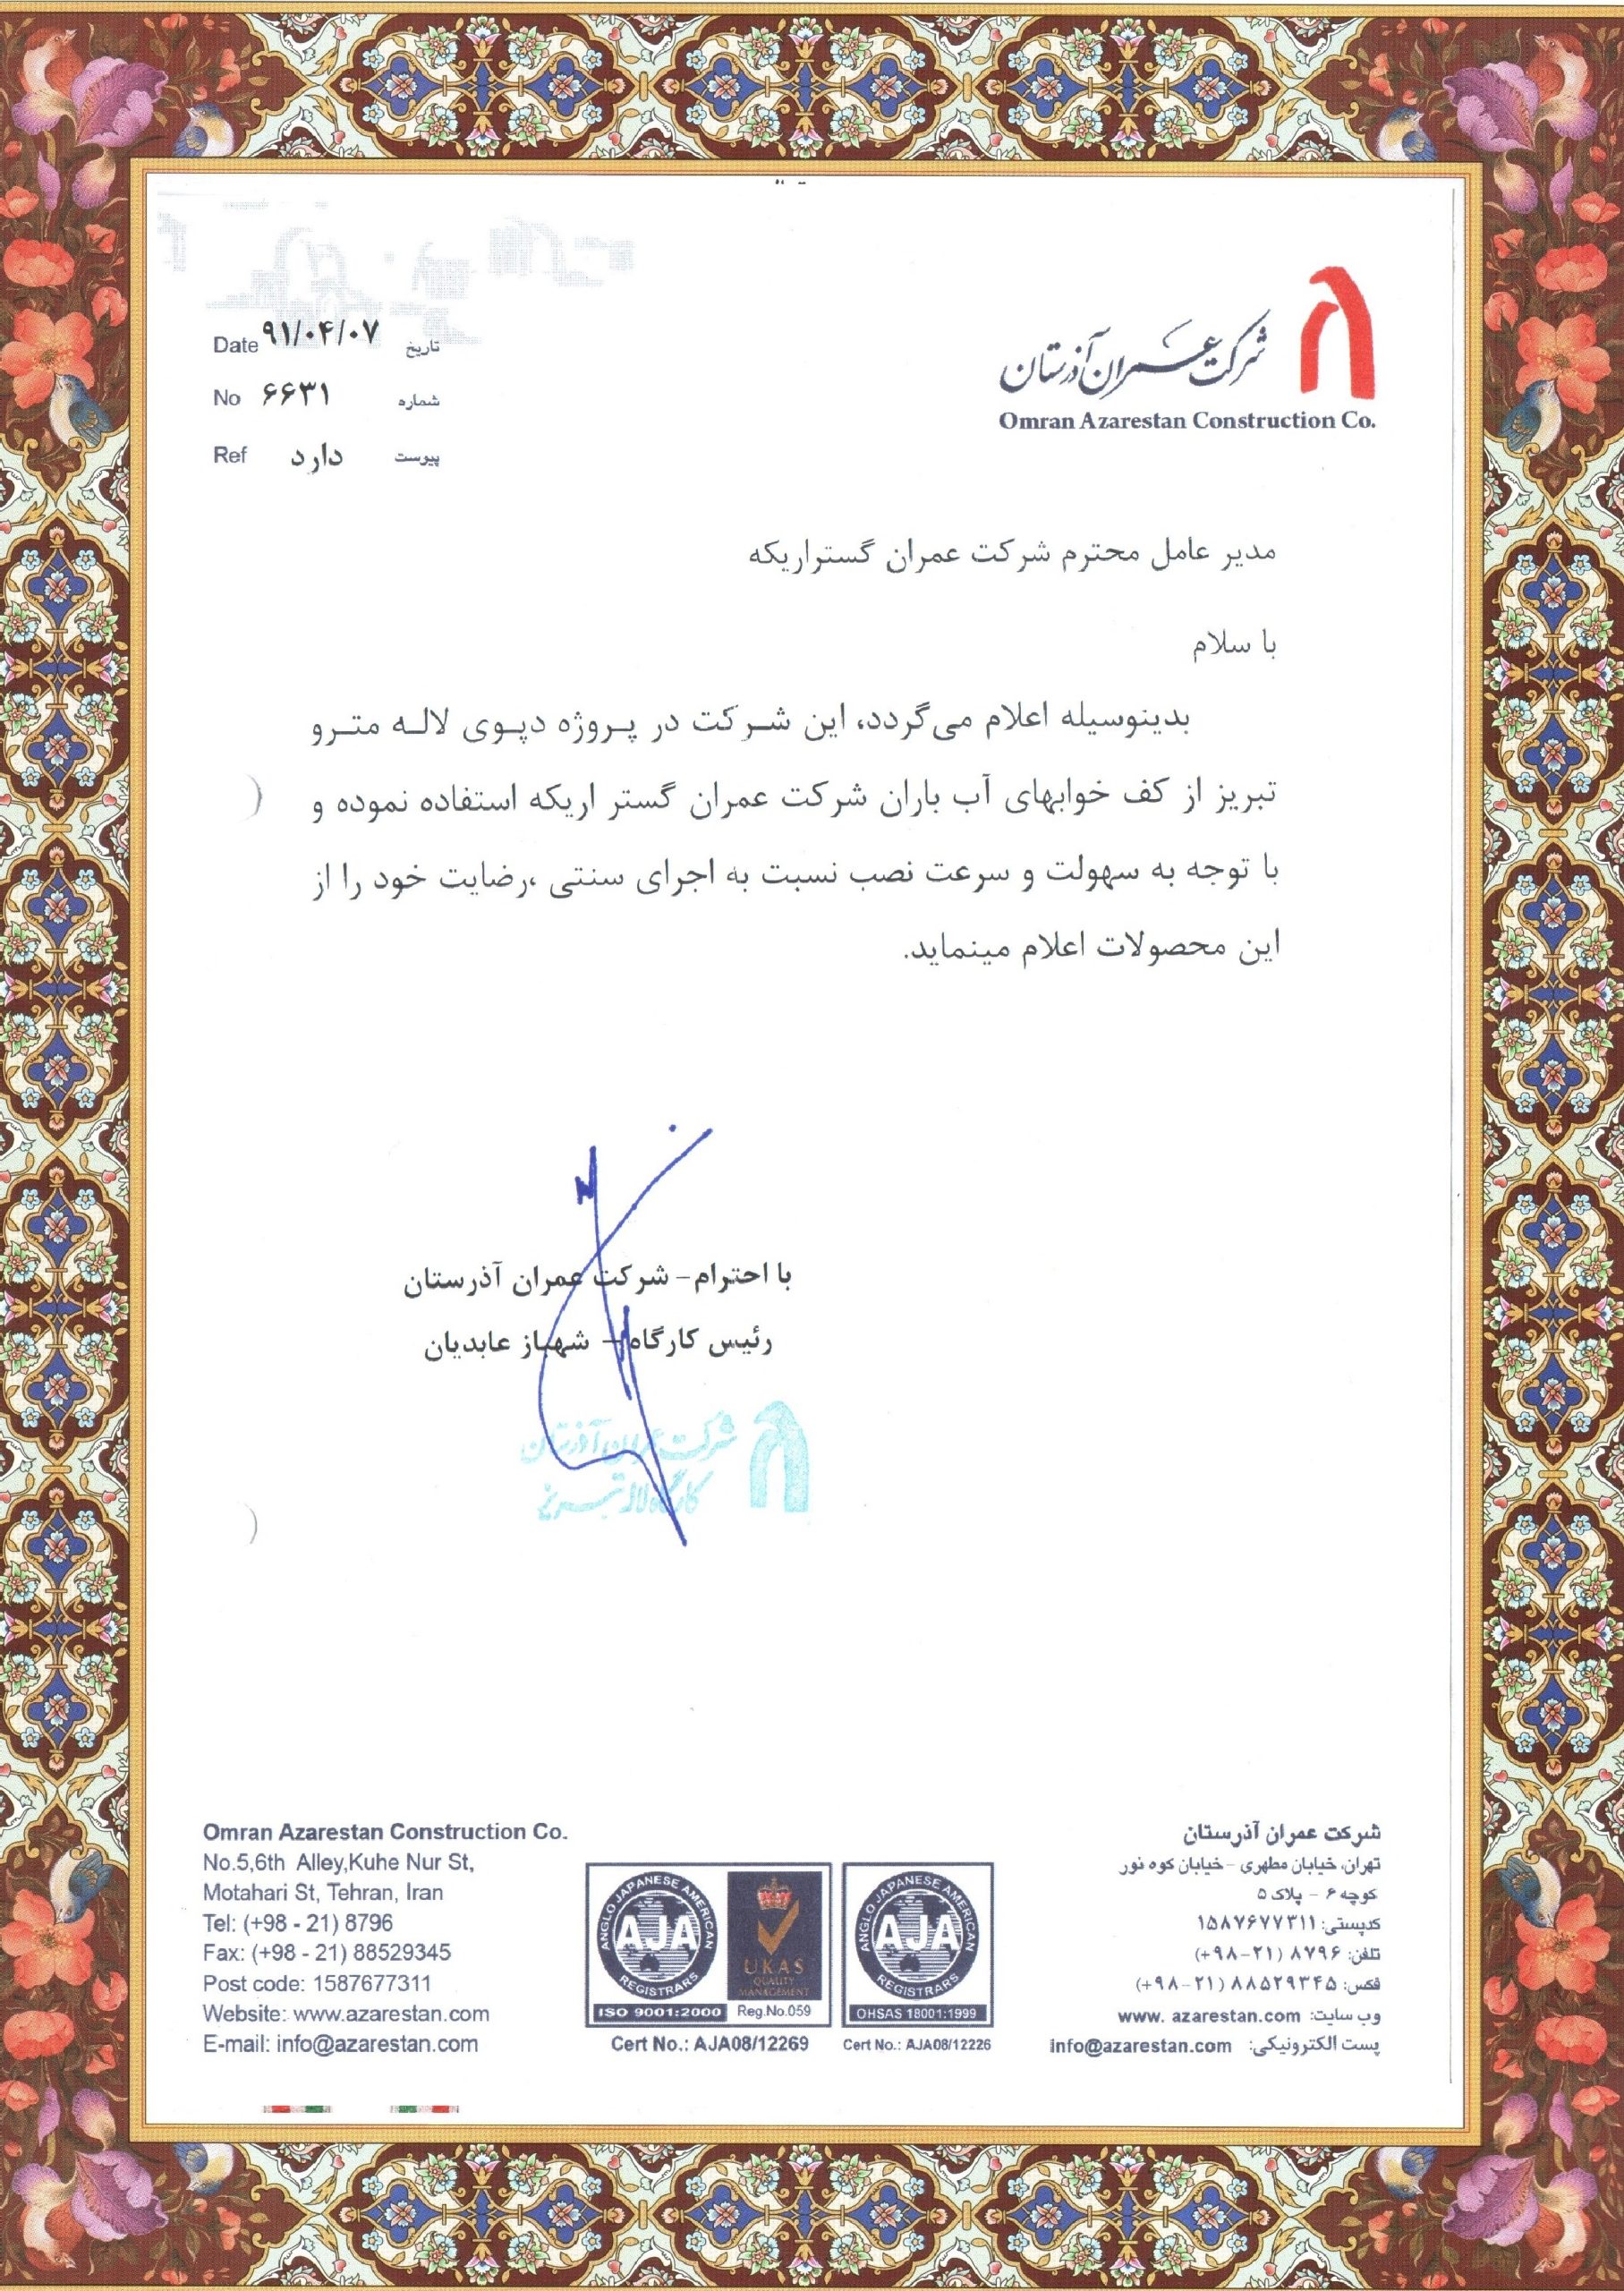 شرکت عمران آذرستان
Omran Azarestan Construction Co.
Date ۹۱/۰۴/۰۷ تاریخ
No ۶۶۳۱ شماره
Ref دارد پیوست
مدیر عامل محترم شرکت عمران گستراریکه
با سلام
بدینوسیله اعلام می‌گردد، این شرکت در پروژه دپوی لاله مترو
تبریز از کف خوابهای آب باران شرکت عمران گستر اریکه استفاده نموده و
با توجه به سهولت و سرعت نصب نسبت به اجرای سنتی ،رضایت خود را از
این محصولات اعلام مینماید.
با احترام- شرکت عمران آذرستان
رئیس کارگاه – شهباز عابدیان
شرکت عمران آذرستان
کارگاه لاله تبریز
Omran Azarestan Construction Co.
No.5,6th Alley,Kuhe Nur St,
Motahari St, Tehran, Iran
Tel: (+98 - 21) 8796
Fax: (+98 - 21) 88529345
Post code: 1587677311
Website: www.azarestan.com
E-mail: info@azarestan.com
ANGLO JAPANESE AMERICAN
AJA
REGISTRARS
ISO 9001:2000
UKAS
QUALITY
MANAGEMENT
Reg.No.059
Cert No.: AJA08/12269
ANGLO JAPANESE AMERICAN
AJA
REGISTRARS
OHSAS 18001:1999
Cert No.: AJA08/12226
شرکت عمران آذرستان
تهران، خیابان مطهری - خیابان کوه نور
کوچه ۶ - پلاک ۵
کدپستی: ۱۵۸۷۶۷۷۳۱۱
تلفن: ۸۷۹۶ (۲۱-۹۸+)
فکس: ۸۸۵۲۹۳۴۵ (۲۱-۹۸+)
وب سایت: www. azarestan.com
پست الکترونیکی: info@azarestan.com